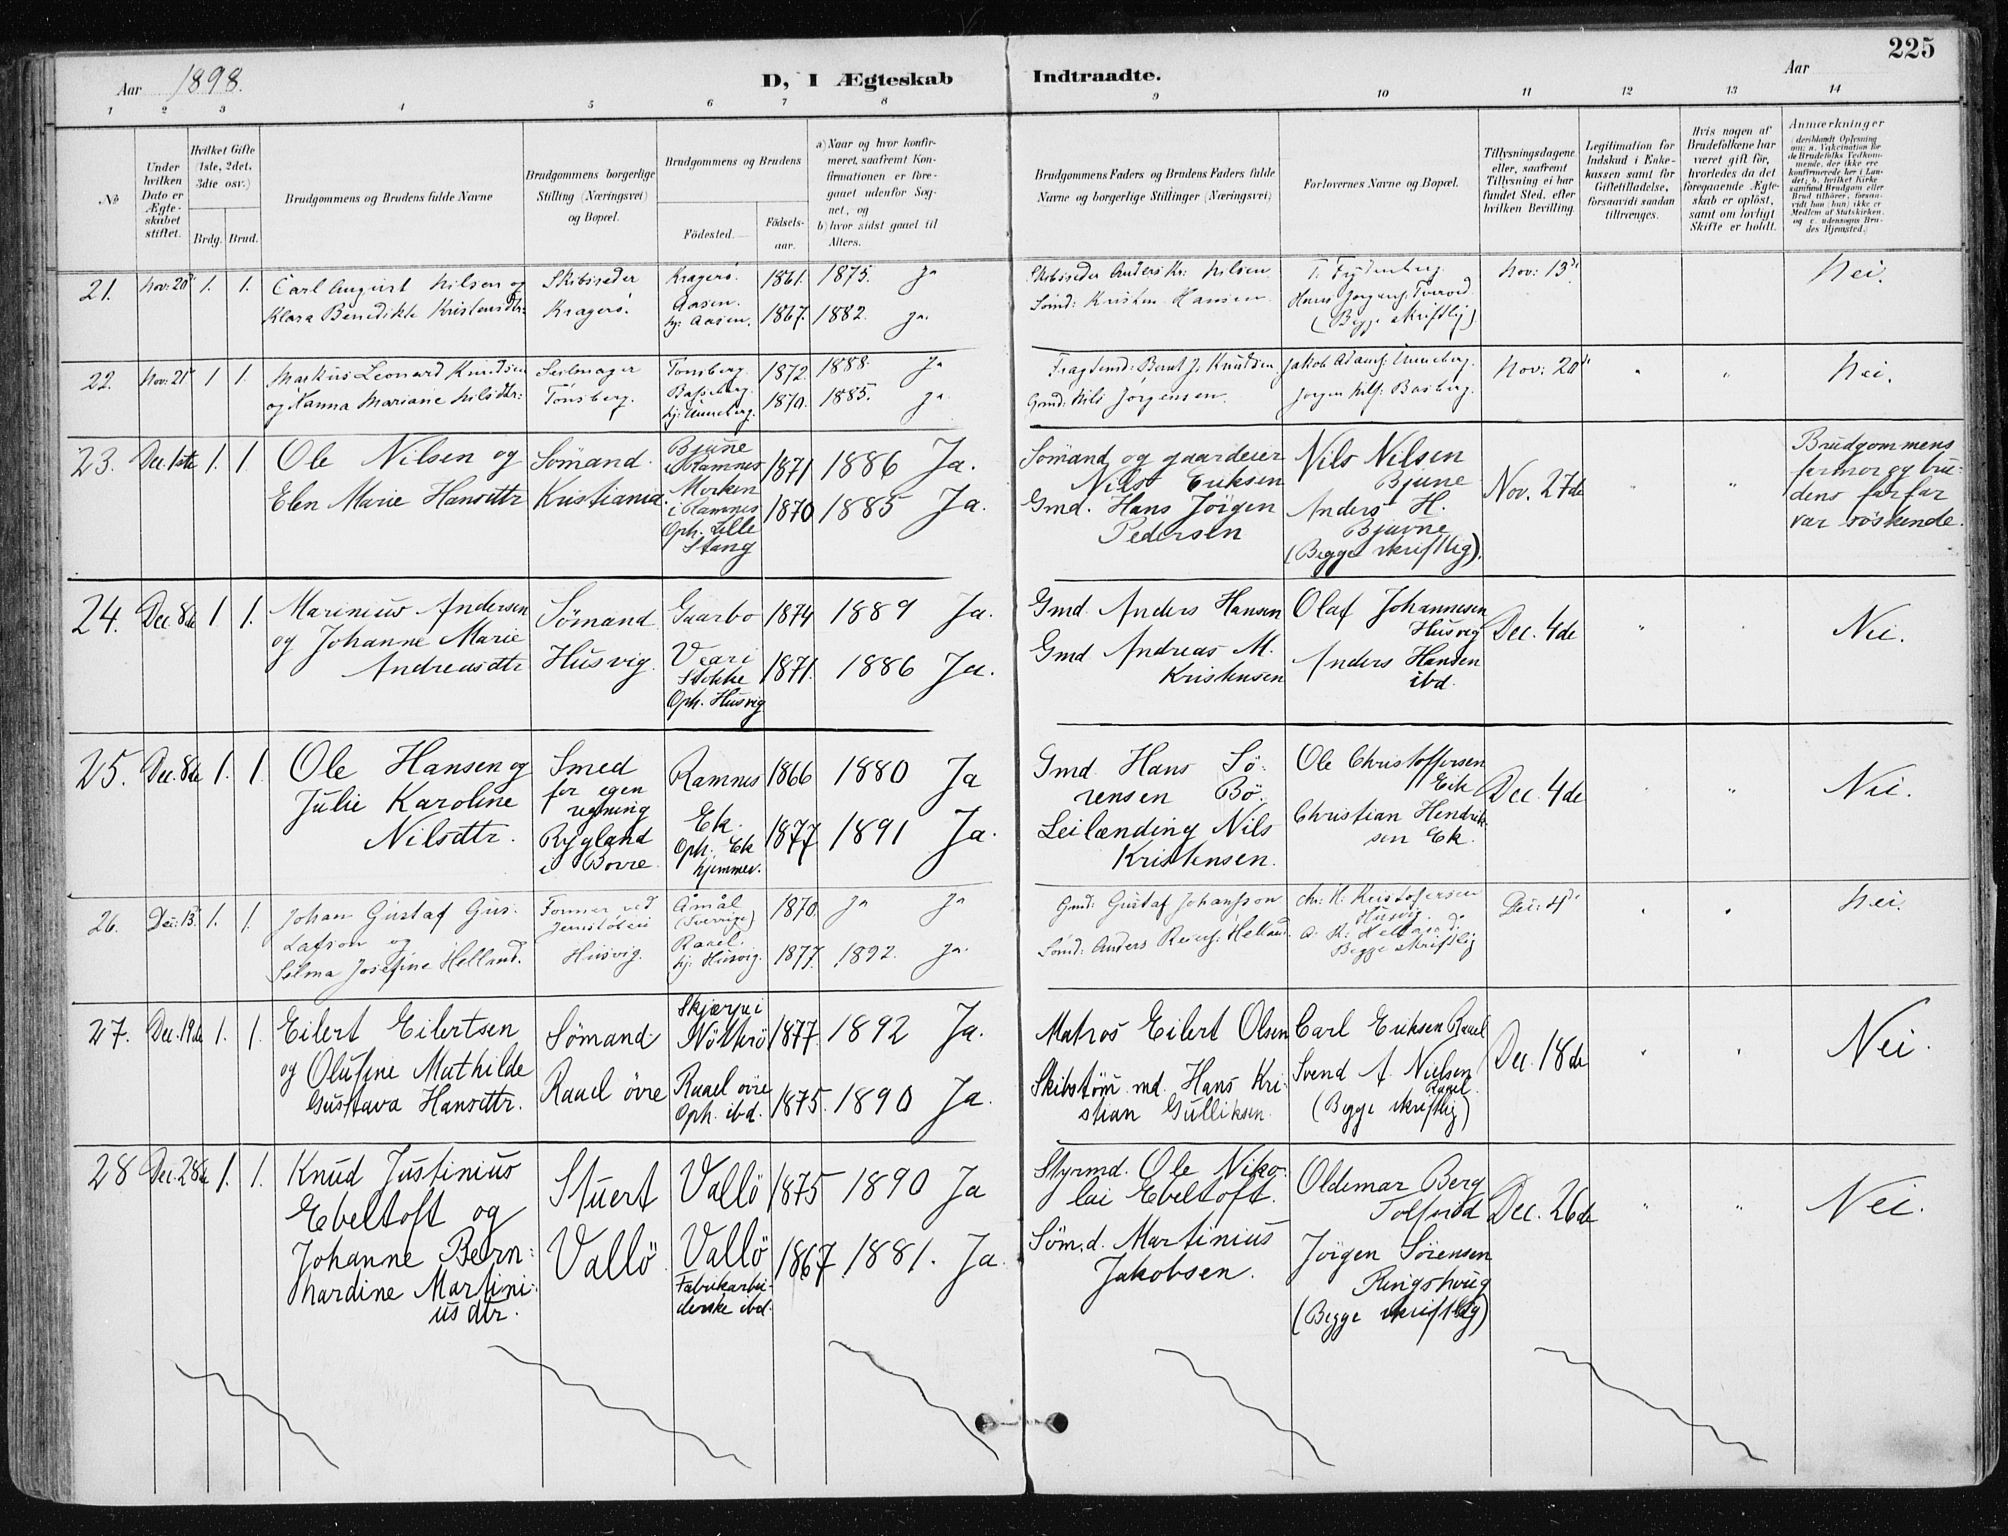 225
Aar 1898.
D, I Ægteskab
Indtraadte.
Aar
1 2 3 4 5 6 7 8 9 10 11 12 13 14
No
Under hvilken Dato er Ægteskabet stiftet.
Hvilket Gifte (1ste, 2det, 3die osv.)
Brdg. Brud.
Brudgommens og Brudens fulde Navne
Brudgommens borgerlige Stilling (Næringsvei) og Bopæl.
Brudgommens og Brudens
Födested.
Födsels-aar.
a) Naar og hvor konfirmeret, saafremt Konfirmationen er foregaaet udenfor Sognet, og
b) hvor sidst gaaet til Alters.
Brudgommens Faders og Brudens Faders fulde Navne og borgerlige Stillinger (Næringsvei)
Forlovernes Navne og Bopæl.
Tillysningsdagene eller, saafremt Tillysning ei har fundet Sted, efter hvilken Bevilling.
Legitimation for Indskud i Enkekassen samt for Giftetilladelse, forsaavidt saadan tiltrænges.
Hvis nogen af Brudefolkene har været gift för, hvorledes da det foregaaende Ægteskab er oplöst, samt om lovligt Skifte er holdt.
Anmærkninger
21. Nov: 20de 1. 1. Carl August Nilsen og Skibsreder Kragerö. 1861. 1875. Ja
Klara Benedikte Kristensdtr: Kragerö. Aasen. hj: Aasen. 1867. 1882. Ja.
Skibsreder Anders Kr: Nilsen
Sömd: Kristen Hansen
(Begge skriftlig)
Nov: 13de
Nei.
22. Nov: 21de 1 1. Markus Leonard Knudsen Seilmager Tönsberg. 1872. 1888. Ja
og Hanna Mariane Nilsdtr: Tönsberg. hj: Unneberg. 1870. 1885. Ja.
Fragtemd: Bernt J. Knudsen
Gmd: Nils Jörgensen.
Jakob Adams. Unneberg.
Jörgen Nils. Basberg.
Nov: 20de " " Nei.
23. Dec. 1ste 1. 1 Ole Nilsen og Sömand. Bjune i Ramnes 1871 1886 Ja.
Elen Marie Hansdtr Kristiania Morken i Ramnes 1870 1885 Ja.
Oph. Lille Stang
Sömand og gaardeier Nils Eriksen
Gmd. Hans Jörgen Pedersen
Nils Nilsen Bjune
Anders H. Bjune
(Begge skriftlig).
Nov. 27de " "
Brudgommens farmor og brudens farfar var söskende.
24. Dec. 8de 1 1. Marinius Andersen Sömand Gaarbo 1874 1889 Ja.
og Johanne Marie Andreasdtr Husvig. Veari Stokke Oph. Husvig 1871. 1886 Ja.
Gmd. Anders Hansen
Gmd Andreas M. Kristensen
Olaf Johannesen Husvig
Anders Hansen ibd.
Dec. 4de " Nei.
25. Dec. 8de 1. 1. Ole Hansen og Smed for egen regning Ramnes 1866 1880 Ja
Julie Karoline Nilsdtr. Rygland i Borre Ek. Oph. Ek hjemmev. 1877 1891 Ja.
Gmd. Hans Sörensen Bö.
Leilænding Nils Kristensen.
Ole Christoffersen Eik
Christian Hendriksen Ek.
Dec. 4de " Nei.
26. Dec: 13. 1. 1. Johan Gustaf Gustafson og Former ved Jernstöberi Åmål (Sverrige) 1870. Ja Ja
Selma Josefine Helland. Husvig. Raael. hj: Husvig. 1877. 1892. Ja.
Gmd: Gustaf Johansson
Sömd: Anders Reiers. Helland
Chr: H: Kristofersen Husvig.
A. R: Helland. Begge skriftlig
Dec: 4de Nei.
27. Dec. 19de 1. 1. Eilert Eilertsen Sömand Skjærpe i Nötterö 1877. 1892 Ja.
og Olufine Mathilde Gustava Hansdtr. Raael övre Raael övre Oph. ibd. 1875. 1890 Ja.
Matros Eilert Olsen
Skibstöm.md. Hans Kristian Gulliksen.
Carl Eriksen Raael
Svend A. Nielsen Raael
(Begge skriftlig)
Dec. 18de Nei.
28 Dec. 28de 1. 1. Knud Justinius Ebeltoft og Stuert Vallö 1875 1890 Ja
Johanne Bernhardine Martiniusdtr. Vallö Vallö 1867 1881. Ja.
Fabrikarbeiderske ibd.
Styrmd. Ole Nikolai Ebeltoft.
Söm.d. Martinius Jakobsen.
Oldemar Berg Tolfsröd
Jörgen Sörensen Ringshaug
(Begge skriftlig)
Dec. 26de " " Nei.